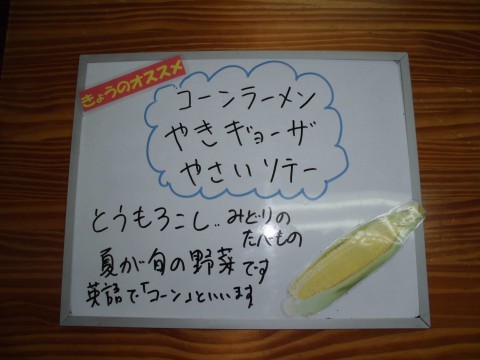 きょうのオススメ
コーンラーメン
やきギョーザ
やさいソテー
とうもろこし‥みどりの
たべもの
夏が旬の野菜です
英語で「コーン」といいます